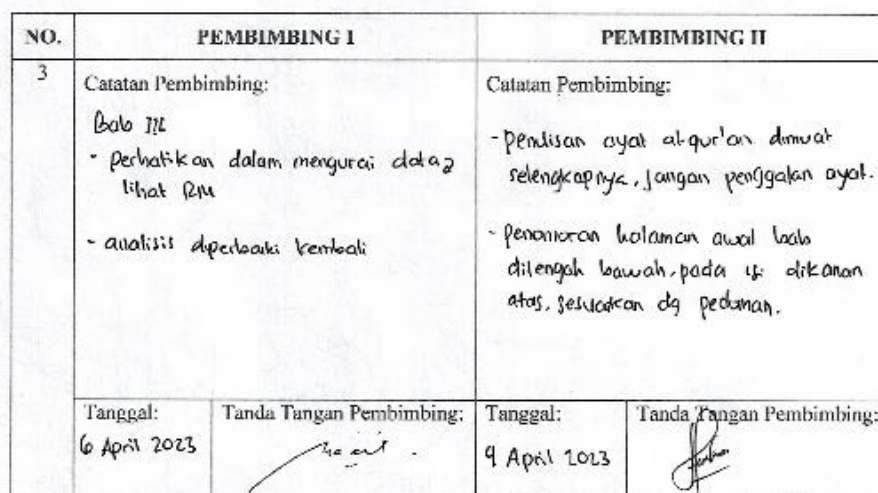 NO.
PEMBIMBING I
PEMBIMBING II
3
Catatan Pembimbing:
Bab III
- perhatikan dalam mengurai data2
lihat RM
- analisis diperbaiki kembali
Catatan Pembimbing:
- penulisan ayat al-qur'an dimuat
selengkapnya, jangan penggalan ayat.
- penomoran halaman awal bab
ditengah bawah, pada isi dikanan
atas, sesuaikan dg pedoman.
Tanggal:
6 April 2023
Tanda Tangan Pembimbing:
Tanggal:
9 April 2023
Tanda Tangan Pembimbing: